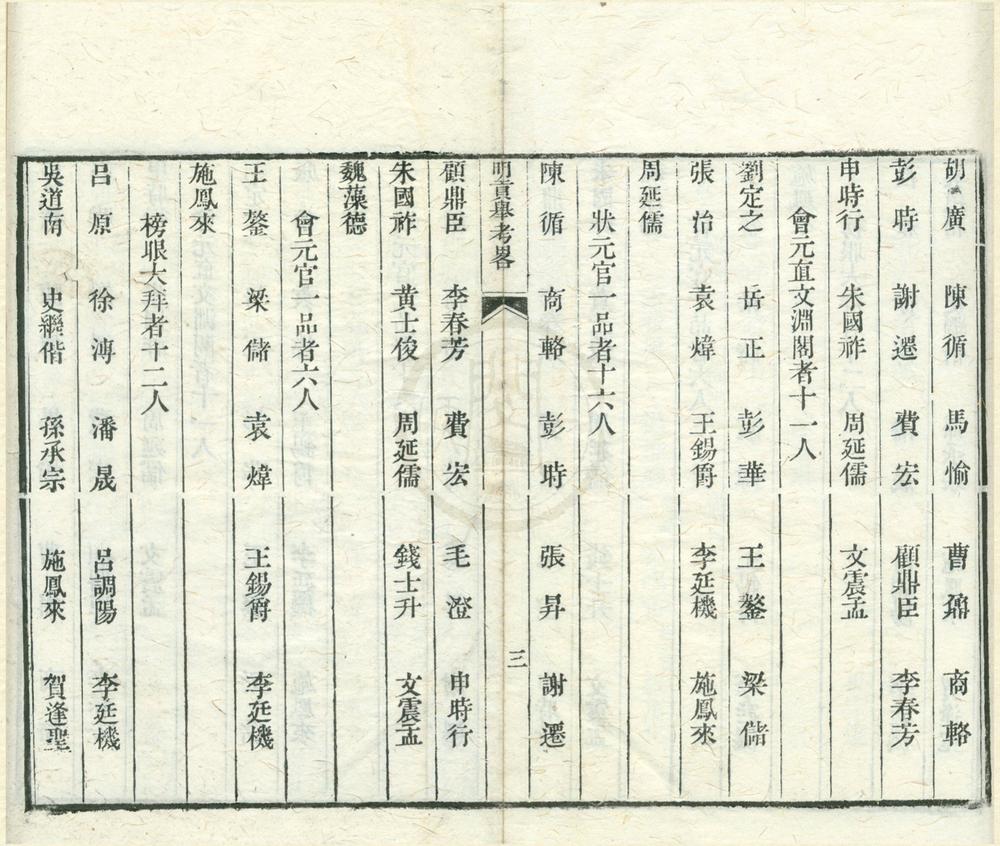 胡廣 陳循 馬愉 曹鼐 商輅
彭時 謝遷 費宏 顧鼎臣 李春芳
申時行 朱國祚 周延儒 文震孟
會元直文淵閣者十一人
劉定之 岳正 彭華 王鏊 梁儲
張治 袁煒 王錫爵 李廷機 施鳳來
周延儒
狀元官一品者十六人
陳循 商輅 彭時 張昇 謝遷
明貢舉考畧 三
顧鼎臣 李春芳 費宏 毛澄 申時行
朱國祚 黃士俊 周延儒 錢士升 文震孟
魏藻德
會元官一品者六人
王鏊 梁儲 袁煒 王錫爵 李廷機
施鳳來
榜眼大拜者十二人
呂原 徐溥 潘晟 呂調陽 李廷機
吳道南 史繼偕 孫承宗 施鳳來 賀逢聖